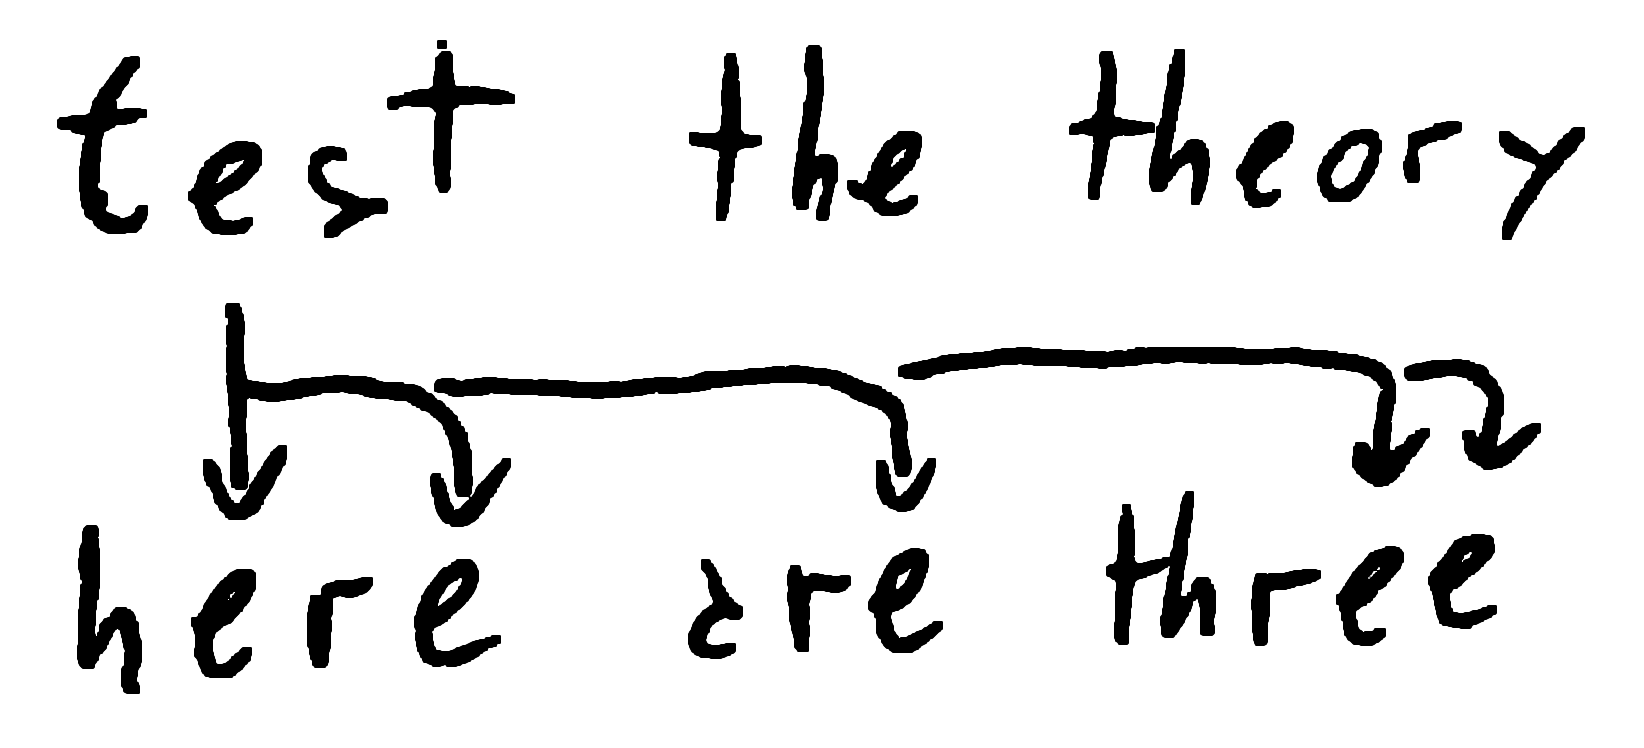 test the theory
here are three